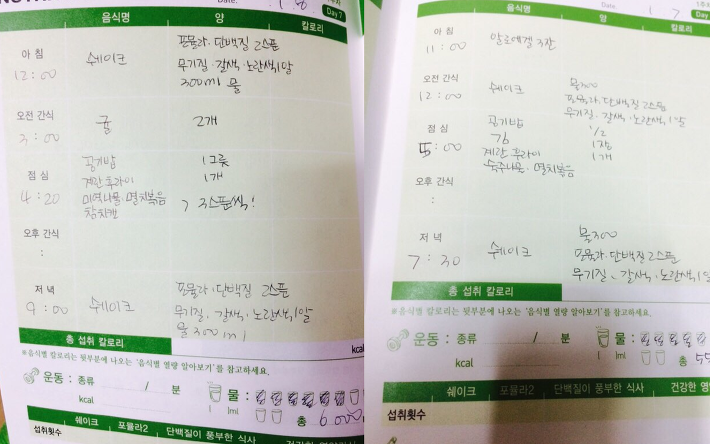 Day 7
음식명 양 칼로리
아침 12:00 쉐이크 포뮬라·단백질 2스푼
무기질·갈색·노란색,1알
300ml 물
오전 간식 3:00 귤 2개
점심 4:20 공기밥 1그릇
계란후라이 1개
미역나물·멸치볶음 > 3스푼씩!
참치캔
오후 간식 :
저녁 9:00 쉐이크 포뮬라·단백질 2스푼
무기질·갈색·노란색,1알
물 300ml
총 섭취 칼로리 kcal
※음식별 칼로리는 뒷부분에 나오는 '음식별 열량 알아보기'를 참고하세요.
운동 : 종류 / 분 물 :
kcal ml 총 6000
쉐이크 포뮬라2 단백질이 풍부한 식사
섭취횟수
Date. 1 7
Day
음식명 양 칼로리
아침 11:00 알로에겔 3잔
오전 간식 12:00 쉐이크 물300
포뮬라·단백질 2스푼
무기질·갈색·노란색,1알
점심 5:00 공기밥 1/2
김 1장
계란후라이 1개
숙주나물·멸치볶음
오후 간식 :
저녁 7:30 쉐이크 물300
포뮬라·단백질 2스푼
무기질·갈색·노란색,1알
총 섭취 칼로리
※음식별 칼로리는 뒷부분에 나오는 '음식별 열량 알아보기'를 참고하세요.
운동 : 종류 / 분 물 :
kcal ml 총
쉐이크 포뮬라2 단백질이 풍부한 식사
섭취횟수